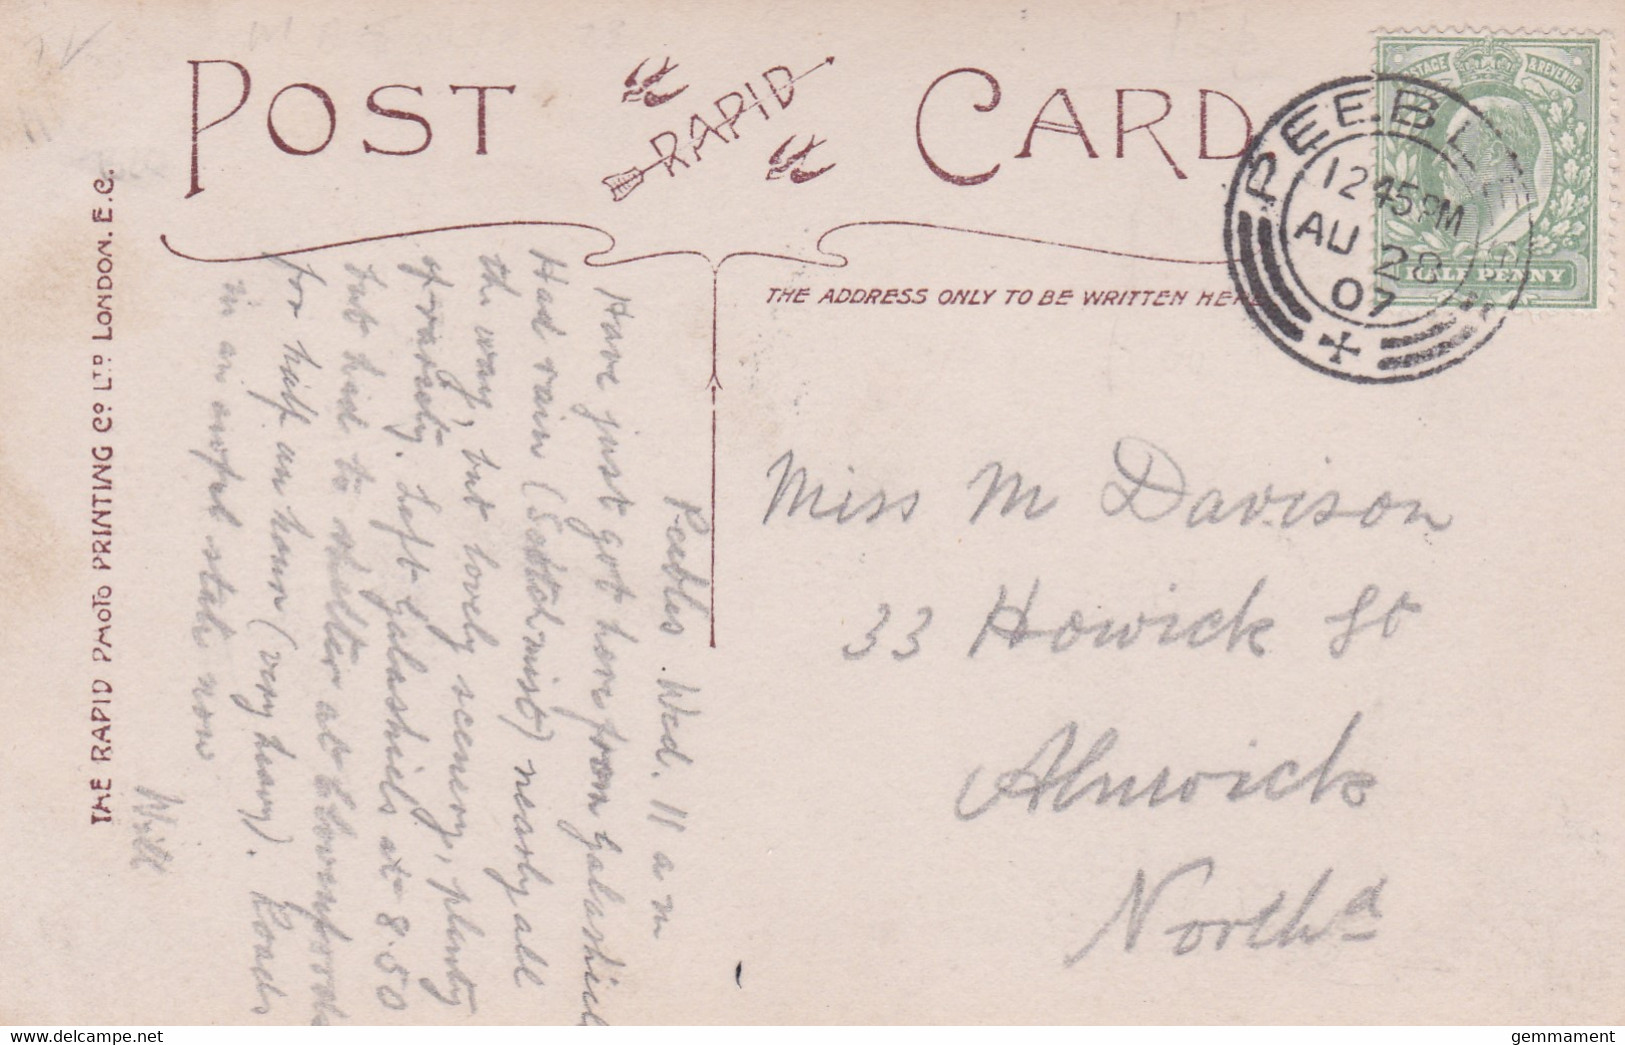 POST RAPID CARD
THE ADDRESS ONLY TO BE WRITTEN HERE
POSTAGE & REVENUE
HALF PENNY
PEEBLES
12 45 PM
AU 28
07
Peebles Wed. 11 am
Have just got here from Galashiels
Had rain (Scotch mist) nearly all
the way, but lovely scenery, plenty
of variety. Left Galashiels at 8.50
but had to shelter at Clovenfords
for half an hour (very heavy). Roads
in an awful state now
Will
Miss M Davison
33 Howick St
Alnwick
Northd
THE RAPID PHOTO PRINTING Co LTD LONDON. E.C.
gemmament